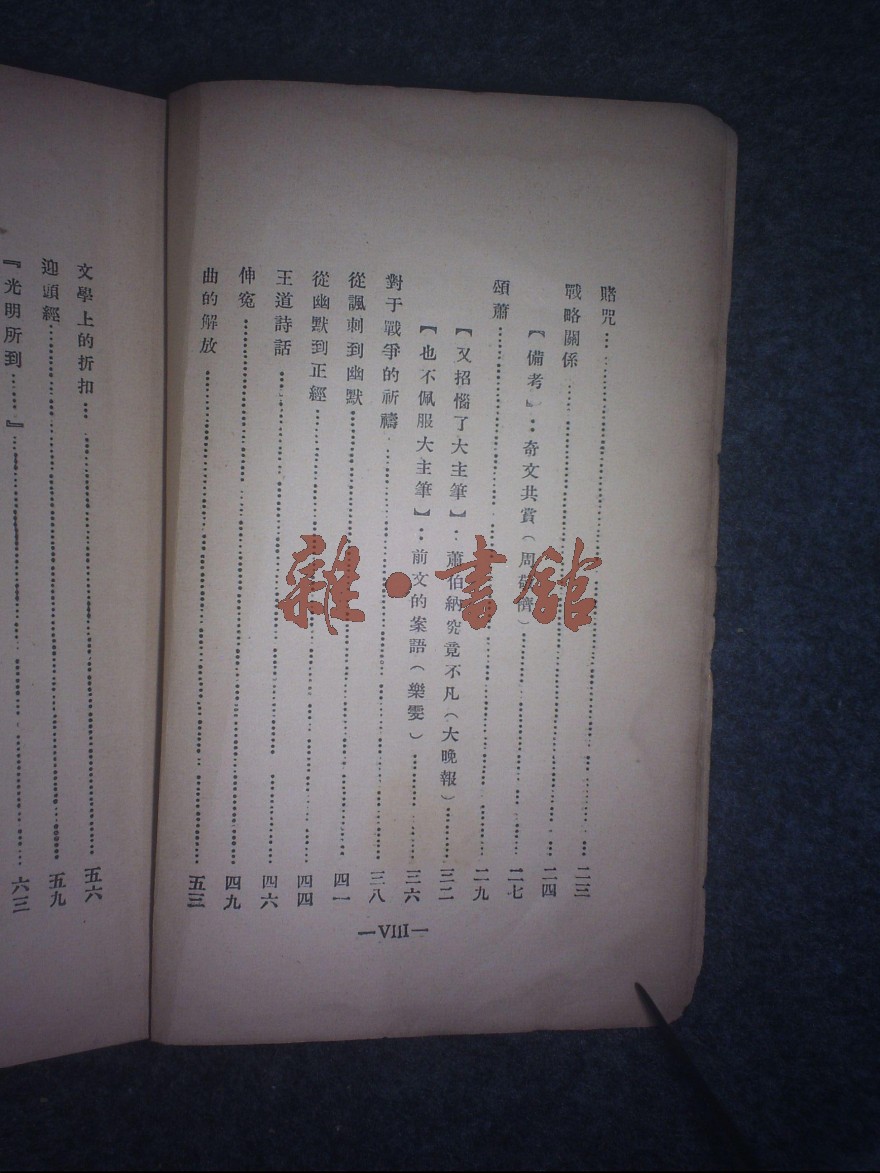 賭咒……………………二三
戰略關係……………………二四
【備考】：奇文共賞（周敬儕）……………………二七
頌蕭……………………二九
【又招惱了大主筆】：蕭伯納究竟不凡（大晚報）………三二
【也不佩服大主筆】：前文的案語（樂雯）………三六
對于戰爭的祈禱……………………三八
從諷刺到幽默……………………四一
從幽默到正經……………………四四
王道詩話……………………四六
伸冤……………………四九
曲的解放……………………五三
—VIII—
文學上的折扣……………………五六
迎頭經……………………五九
『光明所到……』……………………六三
雜·書館